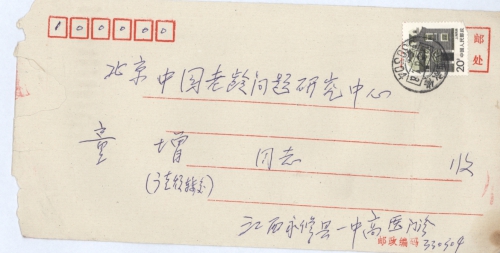 100000
邮处
20分 中国人民邮政
北京中国老龄问题研究中心
童 增 同志 收
江西永修县一中高医门诊
邮政编码 330304